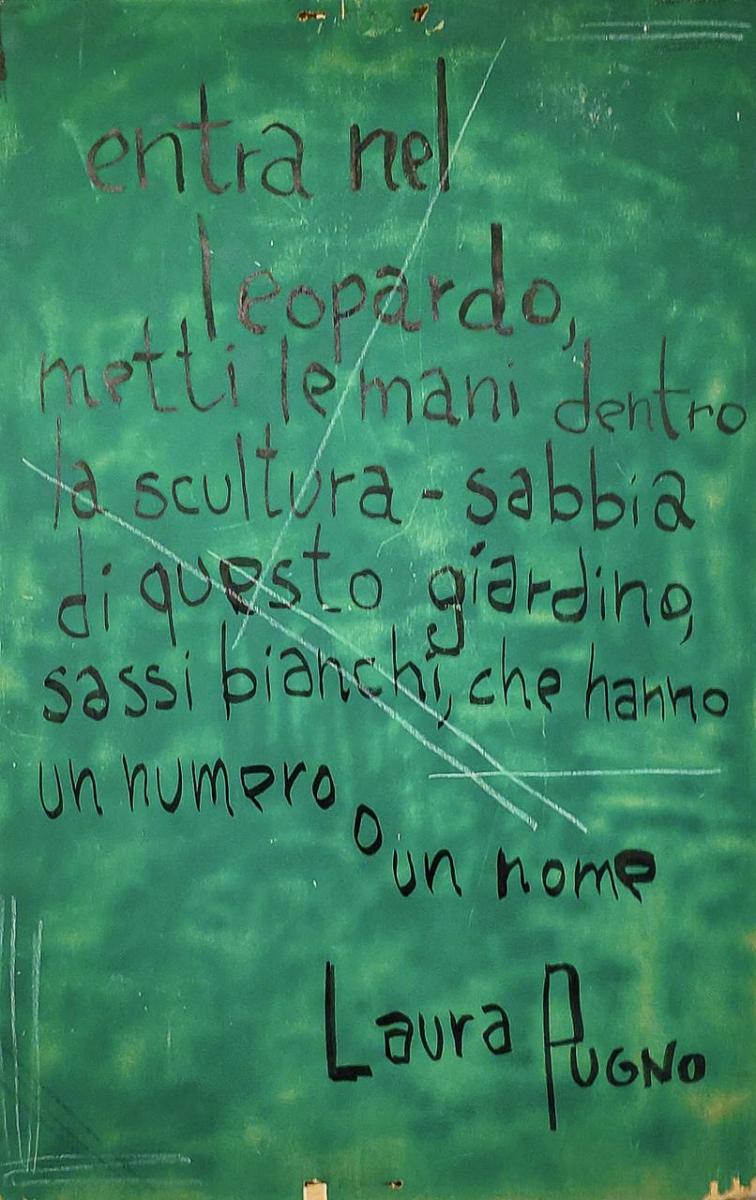 entra nel
leopardo,
metti le mani dentro
la scultura - sabbia
di questo giardino,
sassi bianchi, che hanno
un numero
o un nome
Laura PUGNO